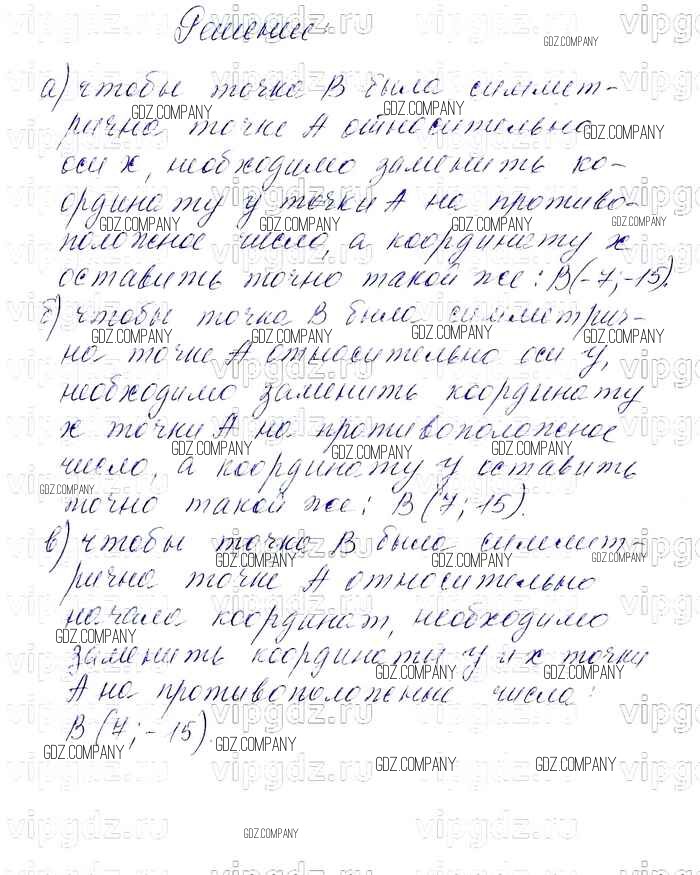 Решение:
а) чтобы точка В была симмет-
рична точке А относительно
оси х, необходимо заменить ко-
ординату у точки А на противо-
положное число, а координату х
оставить точно такой же: В(-7;-15).
б) чтобы точка В была симметрич-
на точке А относительно оси у,
необходимо заменить координату
х точки А на противоположное
число, а координату у оставить
точно такой же: В(7;15).
в) чтобы точка В была симмет-
рична точке А относительно
начала координат, необходимо
заменить координаты у и х точки
А на противоположные числа:
В(7;-15).
GDZ.COMPANY
vipgdz.ru